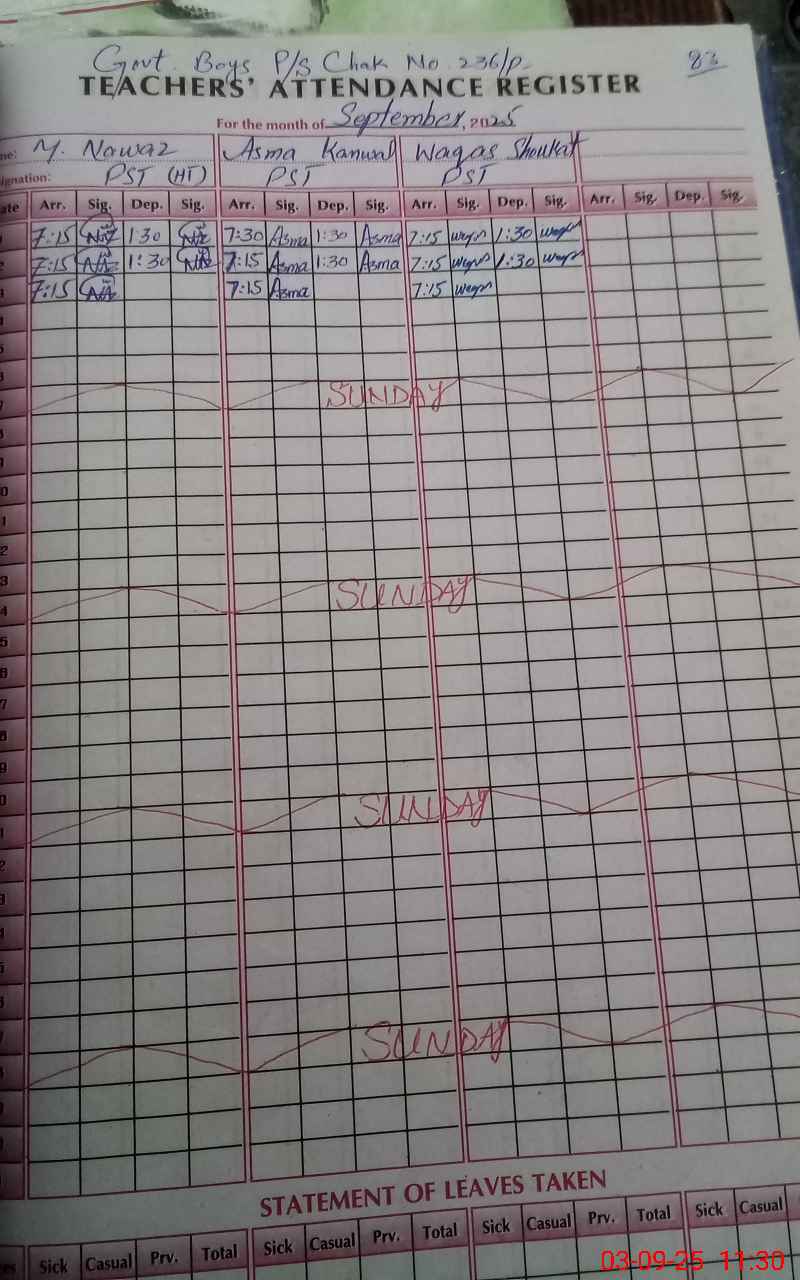 Govt. Boys P/S Chak No. 236/P 83
TEACHERS' ATTENDANCE REGISTER
For the month of September, 2025
me: M. Nawaz Asma Kanwal Waqas Shoukat
signation: PST (HT) PST PST
ate Arr. Sig. Dep. Sig. Arr. Sig. Dep. Sig. Arr. Sig. Dep. Sig. Arr. Sig. Dep. Sig.
7:15 1:30 7:30 Asma 1:30 Asma 7:15 waqas 1:30 waqas
7:15 1:30 7:15 Asma 1:30 Asma 7:15 waqas 1:30 waqas
7:15 7:15 Asma 7:15 waqas
SUNDAY
8
9
0
1
2
3
SUNDAY
4
5
6
7
8
9
0
SUNDAY
1
2
3
4
5
6
7
SUNDAY
8
9
STATEMENT OF LEAVES TAKEN
es Sick Casual Prv. Total Sick Casual Prv. Total Sick Casual Prv. Total Sick Casual
03-09-25 11:30